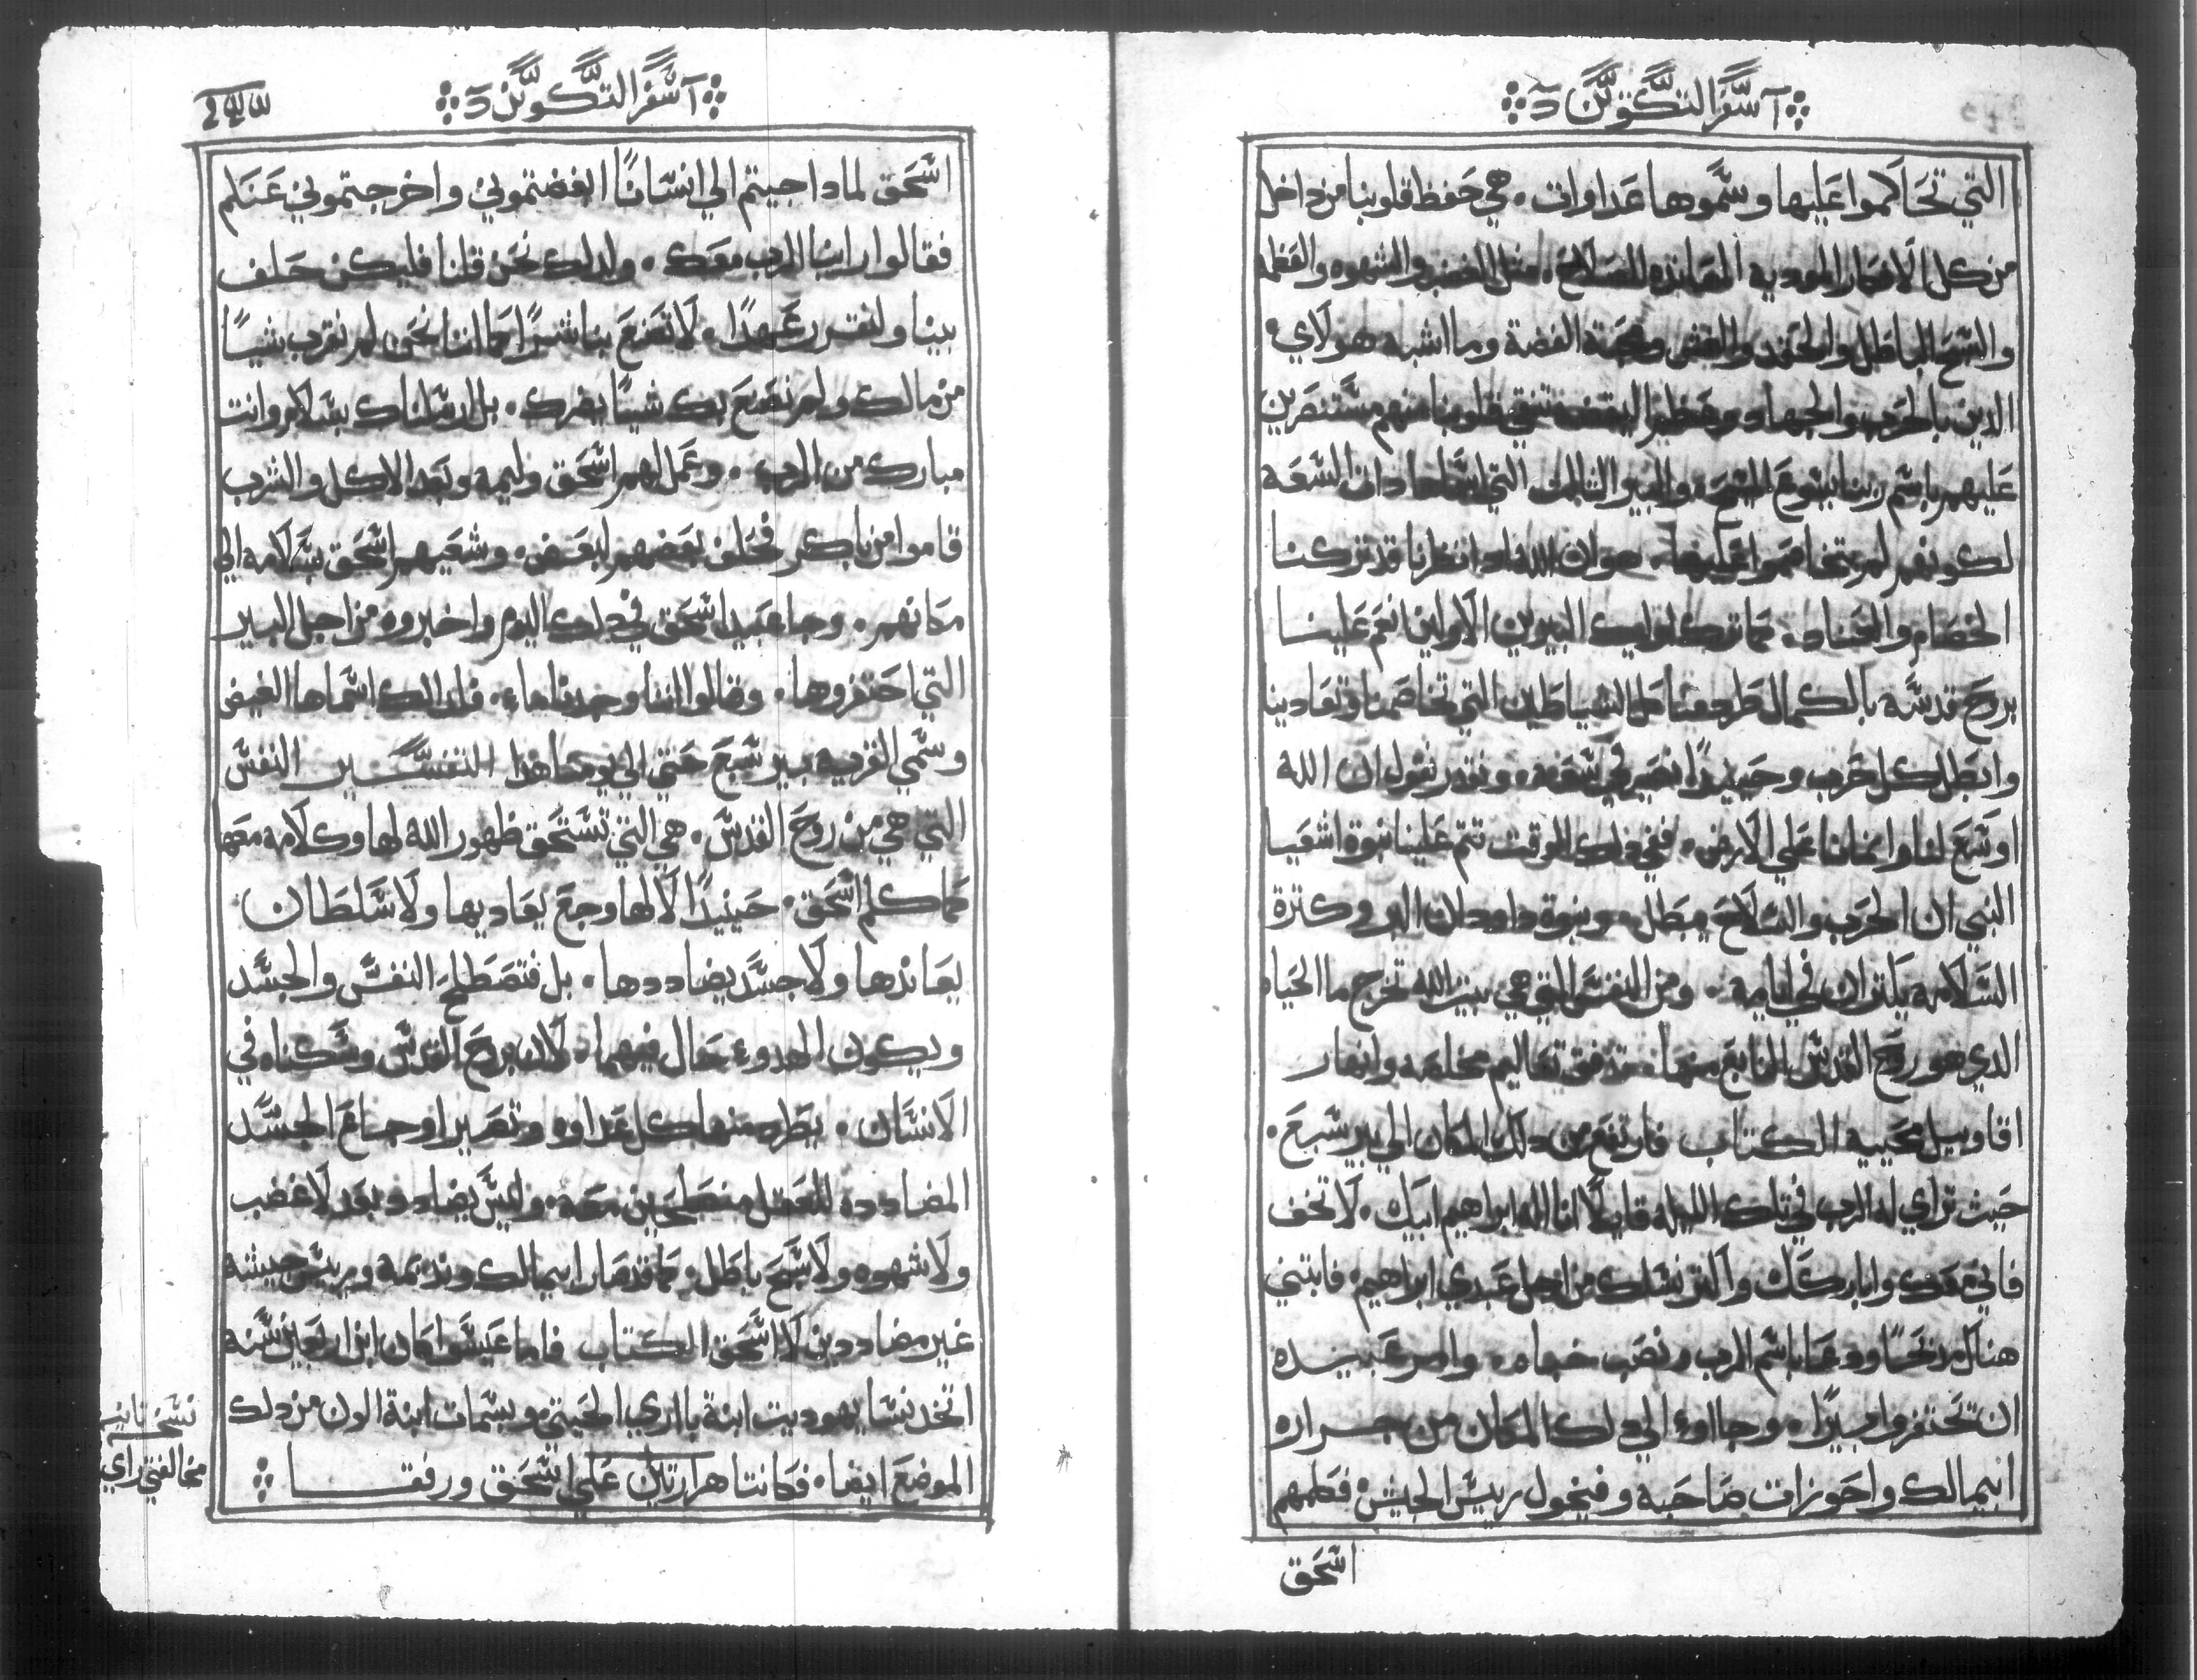 سفر التكوين
التي تحاكموا عليها وسموها عداوات. هي حفظ قلوبنا من داخل
من كل الافكار الموديه المعانده للصلاح. مثل الغضب والشهوه والعظمه
والسبح الباطل والحقد والغش ومحبة الفضة وما اشبه هولاي.
الدين بالحرب والجهاد وعظيم اليقضه تنقي قلوبنا منهم مستنصرين
عليهم باسم ربنا يسوع المسيح. والبير التالت التي اسماها دات السعه
لكونهم لم يتخاصموا عليها. هو ان الله ادا نظرنا قد تركنا
الخصام والعناد. كما ترك لوليك البيرين الاولين انعم علينا
بروح قدسه بالكمال طرد عنا كل الشياطين التي تخاصمنا وتعادينا
وابطل كل حرب وحينيدًا نصير في سعه. ونقدر نقول ان الله
اوسع لنا وانمانا علي الارض. ففي دلك الوقت تتم علينا نبوة اشعيا
النبي ان الحرب والسلاح يبطل. ونبوة داود ان البر وكترة
السلامه يكتران في ايامه. ومن النفس التي هي بيت الله تخرج ما الحياه
الدي هو روح القدس النابع منها. تدفق تعاليم مخلصه وانهار
اقاويل محييه الكتاب فارتفع من دلك المكان الي بير سبع.
حيث تراي له الرب في تلك الليله قايلًا انا الله ابراهيم ابيك. لا تخف
فاني معك واباركك واكتر نسلك من اجل عبدي ابراهيم. فابتني
هناك مدبحًا ودعا باسم الرب ونصب خباه. وامر عبيده
ان تحتفروا بيرًا. وجااوء الي دلك المكان من جراره
ابيمالك واحوزات صاحبه وفيخول رييس الجيش. فكلمهم
اسحق
سفر التكوين
اسحق لمادا جيتم الي انسانًا ابغضتموني واخرجتموني عنكم
فقالوا راينا الرب معك. ولدلك نحن قلنا فليكن حلف
بينا ولنقرر عهدًا. لا تصنع بنا شرًا كما اننا نحن لم نقرب شيًا
من مالك ولم نصنع بك شيًا يضرك. بل ارسلناك بسلام وانت
مبارك من الرب. وعمل لهم اسحق وليمه وبعد الاكل والشرب
قاموا من باكر فحلف بعضهم لبعض. وشعيهم اسحق بسلامه الي
مكانهم. وجا عبيد اسحق في دلك اليوم واخبروه من اجل البير
التي احتفروها. وقالوا اننا وجدنا ماء. فلدلك اسماها الفيض
وسمي القريه بير سبع حتي الي يومنا هدا التفسير النفس
التي هي من روح القدس. هي التي تستحق ظهور الله لها وكلامه معها
كما كلم اسحق. حينيدًا لا لها وجع يعاديها ولا سلطان
يعاندها ولا جسد يضاددها. بل فتصطلح النفس والجسد
ويكون الهدوء حال فيهما. لان بروح القدس وسكناه في
الانسان. يطرد منها كل عداوه وتصير اوجاع الجسد
المضادده للعقل منصطلحين معه. وليس يضاد وبعد لا غضب
ولا شهوه ولا سبح باطل. كما قد صار ابيمالك ونديمه ورييس جيشه
غير مضاددين لاسحق الكتاب فاما عيسوا كان ابن اربعين سنه
اتخد نسا يهوديت ابنة بااري الحيتي وبسمات ابنة الون من دلك
الموضع ايضا. فكانتا هرارتين علي اسحق ورفقا
نسخه تانيه
مخالفتي راي